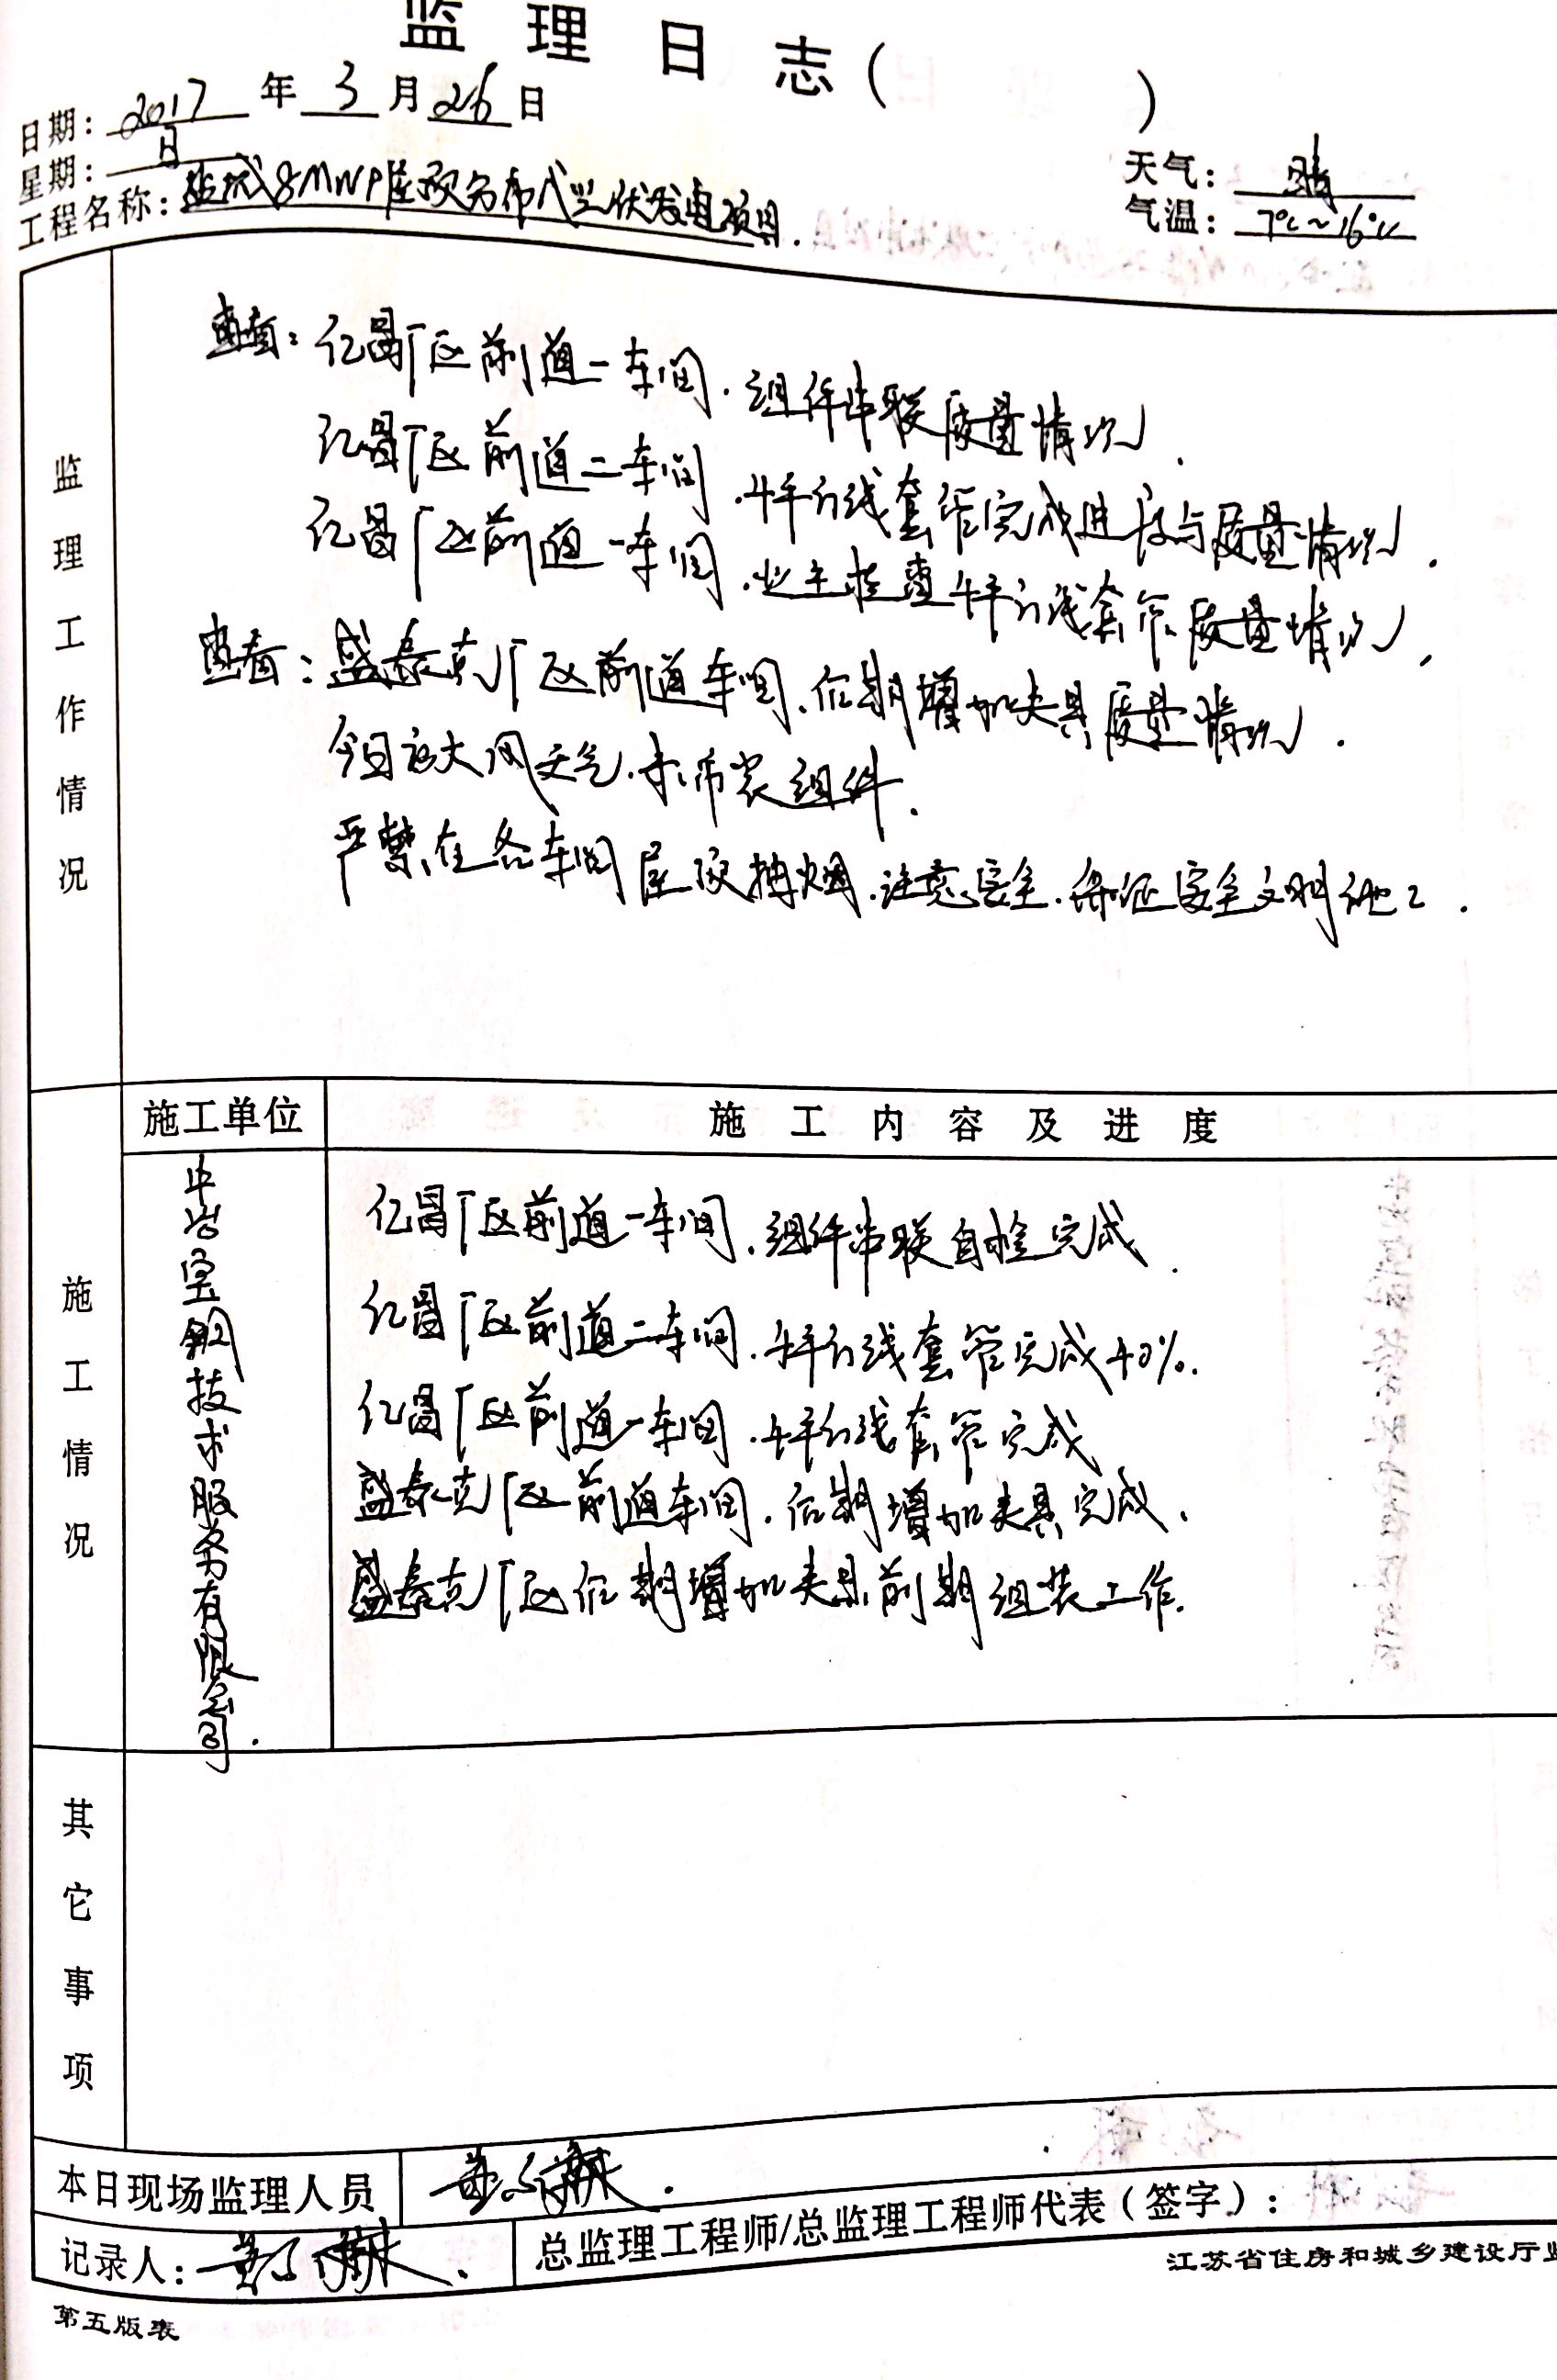 监理日志(  )
日期: 2017 年 3 月 26 日
星期: 日
天气: 晴
工程名称: 盐城8MWP屋顶分布式光伏发电项目.
气温: 7℃~16℃
监理工作情况
查看: 亿昌厂区前道一车间.组件串联质量情况.
亿昌厂区前道二车间.4平方线套管完成进度与质量情况.
亿昌厂区前道一车间.业主检查4平方线套管质量情况.
查看: 盛泰克厂区前道车间.后期增加夹具质量情况.
今日 大风天气.未 装组件.
严禁在各车间屋顶抽烟.注意安全.保证安全文明施工.
施工单位
施工内容及进度
施工情况
中冶宝钢技术服务有限公司.
亿昌厂区前道一车间.组件串联自检完成.
亿昌厂区前道二车间.4平方线套管完成40%.
亿昌厂区前道一车间.4平方线套管完成
盛泰克厂区前道车间.后期增加夹具完成.
盛泰克厂区后期增加夹具前期组装工作.
其它事项
本日现场监理人员
记录人:
总监理工程师/总监理工程师代表(签字):
江苏省住房和城乡建设厅监
第五版表